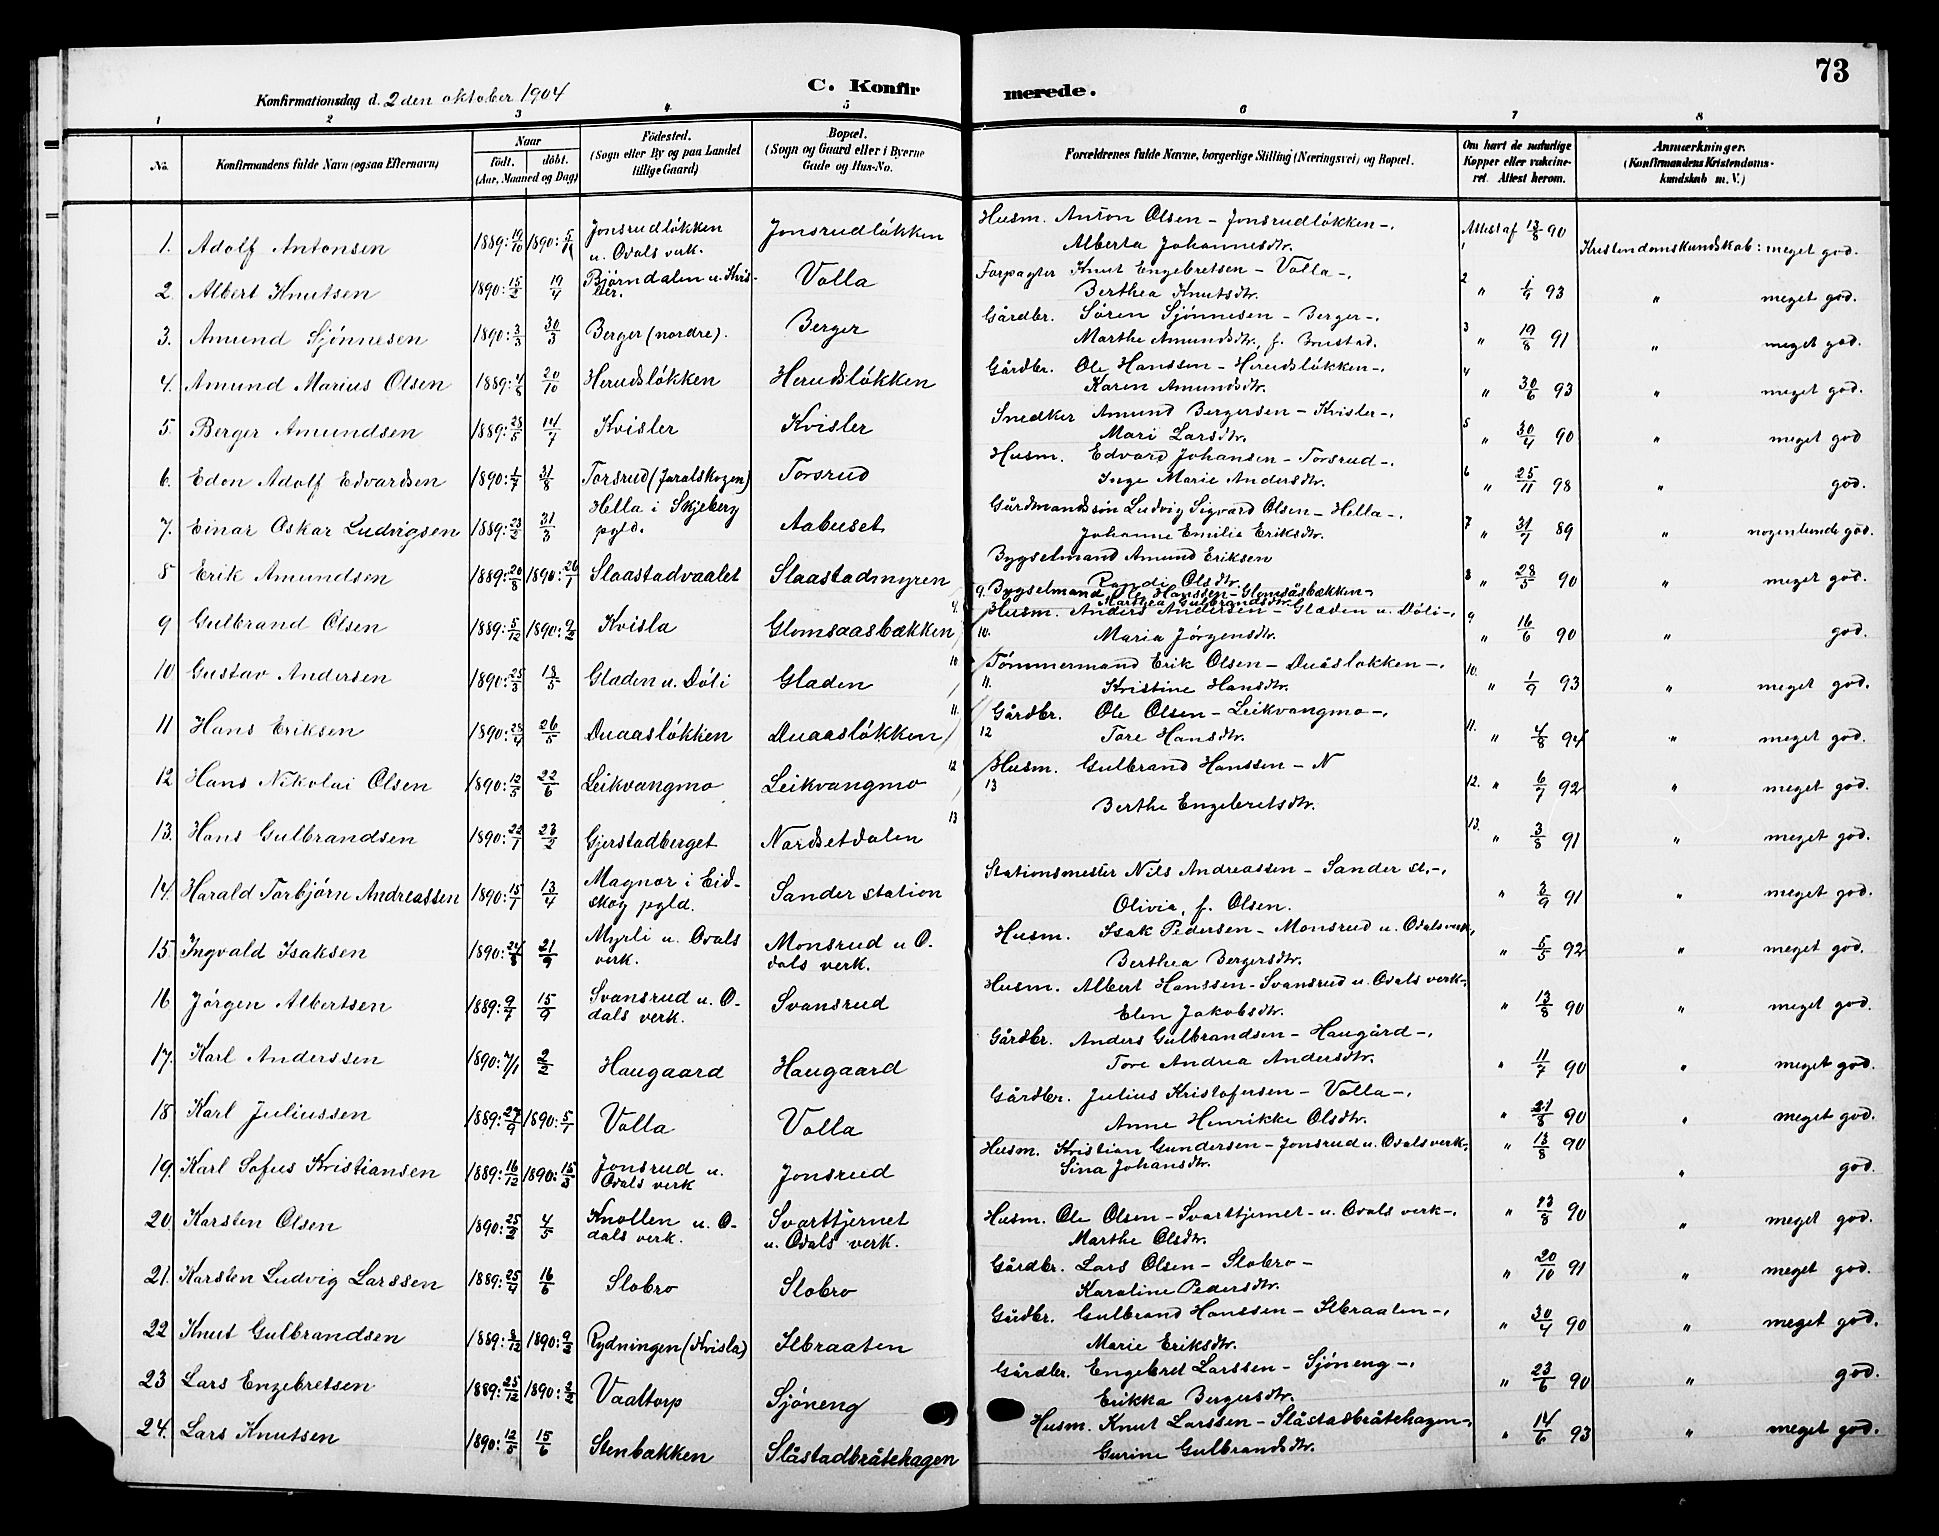 73
Konfirmationsdag d. 2den oktober 1904
C. Konfirmerede.
1 2 3 4 5 6 7 8
No.
Konfirmandens fulde Navn (ogsaa Efternavn)
Naar
födt. döbt.
(Aar, Maaned og Dag)
Födested.
(Sogn eller By og paa Landet
tillige Gaard)
Bopæl.
(Sogn og Gaard eller i Byerne
Gade og Hus-No.
Forældrenes fulde Navne, borgerlige Stilling (Næringsvei) og Bopæl.
Om havt de naturlige
Kopper eller vakcine-
ret. Attest herom.
Anmærkninger.
(Konfirmandens Kristendoms-
kundskab m. V.)
1. Adolf Antonsen 1889: 19/10 1890: 5/1 Jonsrudløkken u. Odals verk. Jonsrudløkken Husm. Anton Olsen – Jonsrudløkken –. Attest af 13/8 90 Kristendomskundskab: meget god.
Alberta Johannesdtr.
2. Albert Knutsen 1890: 15/2 19/4 Bjørndalen u. Kvisler. Volla Forpagter Knut Engebretsen – Volla –. 2 " 1/9 93 " meget god.
Berthea Knutsdtr.
3. Amund Sjönnesen 1890: 3/3 30/3 Berger (nordre). Berger Gårdbr. Sören Sjönnesen – Berger –. 3 " 19/8 91 " meget god.
Marthe Amundsdtr., f. Brustad.
4. Amund Marius Olsen 1889: 4/8 20/10 Herudsløkken Herudsløkken Gårdbr. Ole Hanssen – Herudsløkken –. 4 " 30/6 93 " meget god.
Karen Amundsdtr.
5. Berger Amundsen 1889: 28/5 14/7 Kvisler Kvisler Snedker Amund Bergersen – Kvisler –. 5 " 30/4 90 " meget god
Mari Larsdtr.
6. Edon Adolf Edvardsen 1890: 1/7 31/8 Torsrud (Jaralskogen) Torsrud Husm. Edvard Johansen – Torsrud –. 6 " 25/11 98 " god.
Inge Marie Andersdtr.
7. Einar Oskar Ludvigsen 1889: 23/2 31/3 Hella i Skjeberg pgld. Aabuset Gårdmandssøn Ludvig Sigvard Olsen – Hella –. 7 " 31/7 89 " nogenlunde god.
Johanne Emilie Eriksdtr.
8 Erik Amundsen 1889: 20/8 1890: 26/1 Slaastadvaalet Slaastadmyren Bygselmand Amund Eriksen 8 " 28/5 90 " meget god.
Randi Olsdtr.
9. Bygselmand Ole Hanssen – Glomsåsbækken –
Marthea Gulbrandsdtr.
9 Gulbrand Olsen 1889: 5/12 1890: 9/2 Kvisla Glomsaasbækken Husm. Anders Andersen – Gladen u. Döli –. 9 " 16/6 90 " god.
10. Maria Jörgensdtr.
10 Gustav Andersen 1890: 25/3 18/5 Gladen u. Döli Gladen Tömmermand Erik Olsen – Duåsløkken –. 10. " 1/9 93 " meget god.
11. Kristine Hansdtr.
11 Hans Eriksen 1890: 28/4 26/5 Duaasløkken Duaasløkken Gårdbr. Ole Olsen – Leikvangmo –. 11. " 4/8 94 " meget god.
12 Tore Hansdtr.
12 Hans Nikolai Olsen 1890: 12/5 22/6 Leikvangmo Leikvangmo Husm. Gulbrand Hanssen – N 12. " 6/7 92 " meget god.
13 Berthe Engebretsdtr.
13. Hans Gulbrandsen 1890: 22/1 23/2 Gjerstadberget Nordsetdalen 13. " 3/8 91 " meget god.
14. Harald Torbjørn Andreassen 1890: 15/1 13/4 Magnor i Eidskog pgld. Sander station Stationsmester Nils Andreassen – Sander st. –. " 3/9 91 " meget god.
Olivia, f. Olsen.
15. Ingvald Isaksen 1890: 24/8 21/9 Myrli u. Odals verk. Monsrud u Odals verk. Husm. Isak Pedersen – Monsrud u. Odals verk, " 5/5 92 " meget god.
Berthea Bergersdtr.
16 Jörgen Albertsen 1889: 9/7 15/9 Svansrud u. Odals verk. Svansrud Husm. Albert Hanssen – Svansrud u. Odals verk –. " 13/8 90 " meget god.
Elen Jakobsdtr.
17. Karl Anderssen 1890: 7/1 2/2 Haugaard Haugaard Gårdbr. Anders Gulbrandsen – Haugård –. " 11/7 90 " meget god.
Tore Andrea Andersdtr.
18 Karl Juliussen 1889: 27/9 1890: 5/1 Volla Volla Gårdbr. Julius Kristofersen – Volla –. " 21/8 90 " meget god.
Anne Henrikke Olsdtr.
19. Karl Sofus Kristiansen 1889: 16/12 1890: 15/3 Jonsrud u. Odals verk Jonsrud Husm. Kristian Gundersen – Jonsrud u. Odals verk, " 13/8 90 " god.
Sina Johansdtr.
20 Karsten Olsen 1890: 25/2 4/5 Knollen u. Odals verk. Svarttjernet u. Odals verk. Husm. Ole Olsen – Svarttjernet – u. Odals verk –. " 13/8 90 " meget god.
Marthe Olsdtr.
21. Karsten Ludvig Larssen 1889: 25/4 16/6 Slobro Slobro Gårdbr. Lars Olsen – Slobro – " 20/10 91 " meget god.
Karoline Pedersdtr.
22 Knut Gulbrandsen 1889: 8/12 1890: 9/2 Rydningen (Kvisla) Ilbraaten Gårdbr. Gulbrand Hanssen – Ilbraaten –. " 30/4 90 " meget god.
Marie Eriksdtr.
23 Lars Engebretsen 1889: 25/12 1890: 2/2 Vaaltorp Sjöneng Gårdbr. Engebret Larssen – Sjöneng –. " 23/6 90 " god.
Erikka Bergersdtr.
24. Lars Knutsen 1890: 12/5 15/6 Stenbakken Slåstadbråtehagen Husm. Knut Larssen – Slåstadbråtehagen –. " 14/6 93 " meget god.
Gurine Gulbrandsdtr.